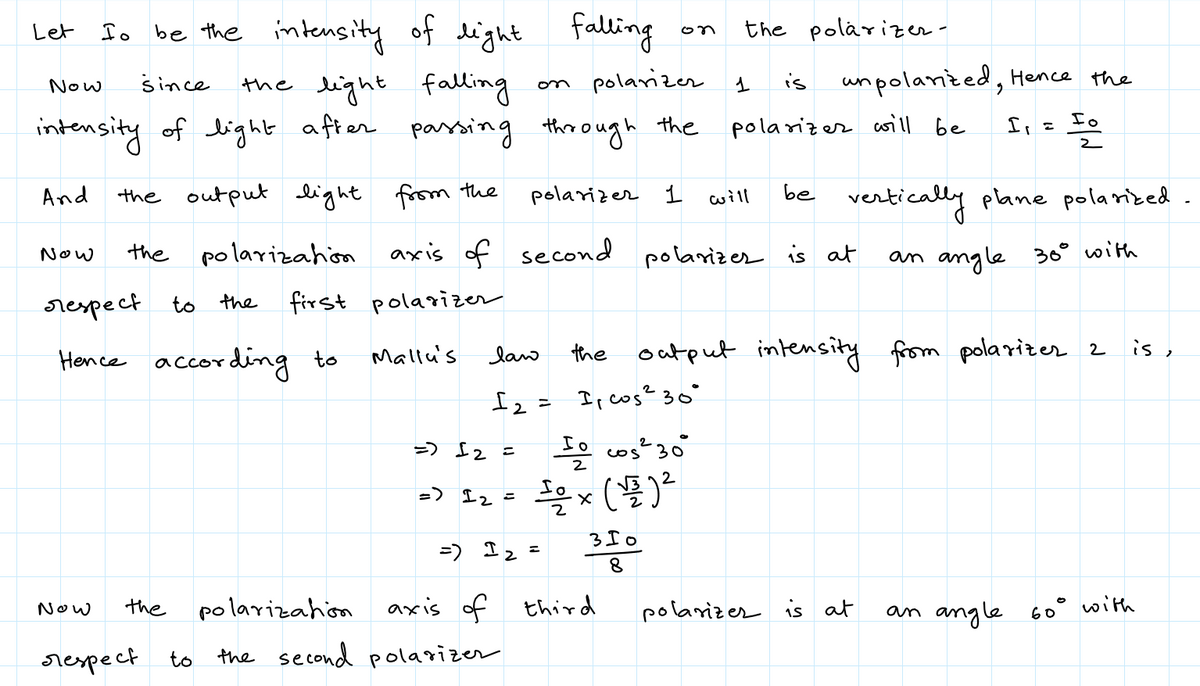 Let I₀ be the intensity of light falling on the polarizer-
Now since the light falling on polarizer 1 is unpolarized, Hence the
intensity of light after passing through the polarizer will be I₁ = I₀/2
And the output light from the polarizer 1 will be vertically plane polarized.
Now the polarization axis of second polarizer is at an angle 30° with
respect to the first polarizer
Hence according to Mallu's law the output intensity from polarizer 2 is,
I₂ = I₁ cos² 30°
=> I₂ = I₀/2 cos² 30°
=> I₂ = I₀/2 × (√3/2)²
=> I₂ = 3I₀/8
Now the polarization axis of third polarizer is at an angle 60° with
respect to the second polarizer